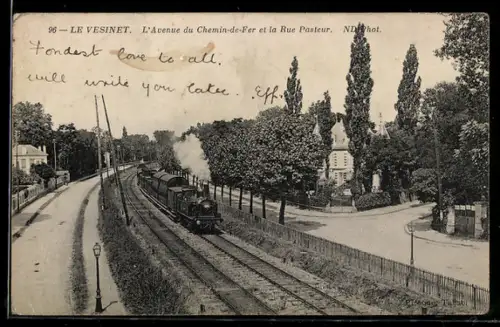 96 — LE VESINET. L'Avenue du Chemin-de-Fer et la Rue Pasteur. ND Phot.
Fondest love to all.
will write you later.
Eff.